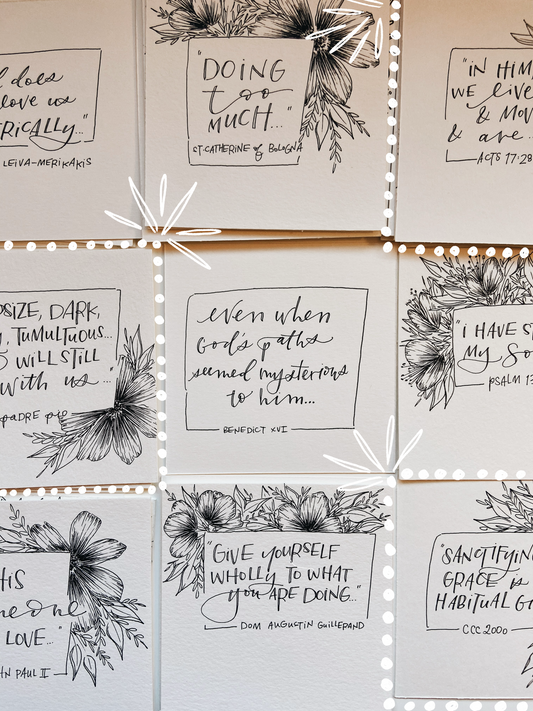 does
love us
RICALLY..."
LEIVA-MERIKAKIS
"DOING
too
MUCH..."
ST. CATHERINE of BOLOGNA
"IN HIM,
WE live
& MOV
& are...
ACTS 17:28
SIZE, DARK,
TUMULTUOUS...
WILL STILL
with us..."
PADRE pio
even when
God's paths
seemed mysterious
to him...
BENEDICT XVI
"I HAVE ST
my So
PSALM 13
HIS
meone
LOVE..."
HN PAUL II
"GIVE YOURSELF
WHOLLY TO WHAT
you ARE DOING..."
DOM AUGUSTIN GUILLERAND
"SANCTIFYIN
GRACE is
HABITUAL GI
CCC 2000